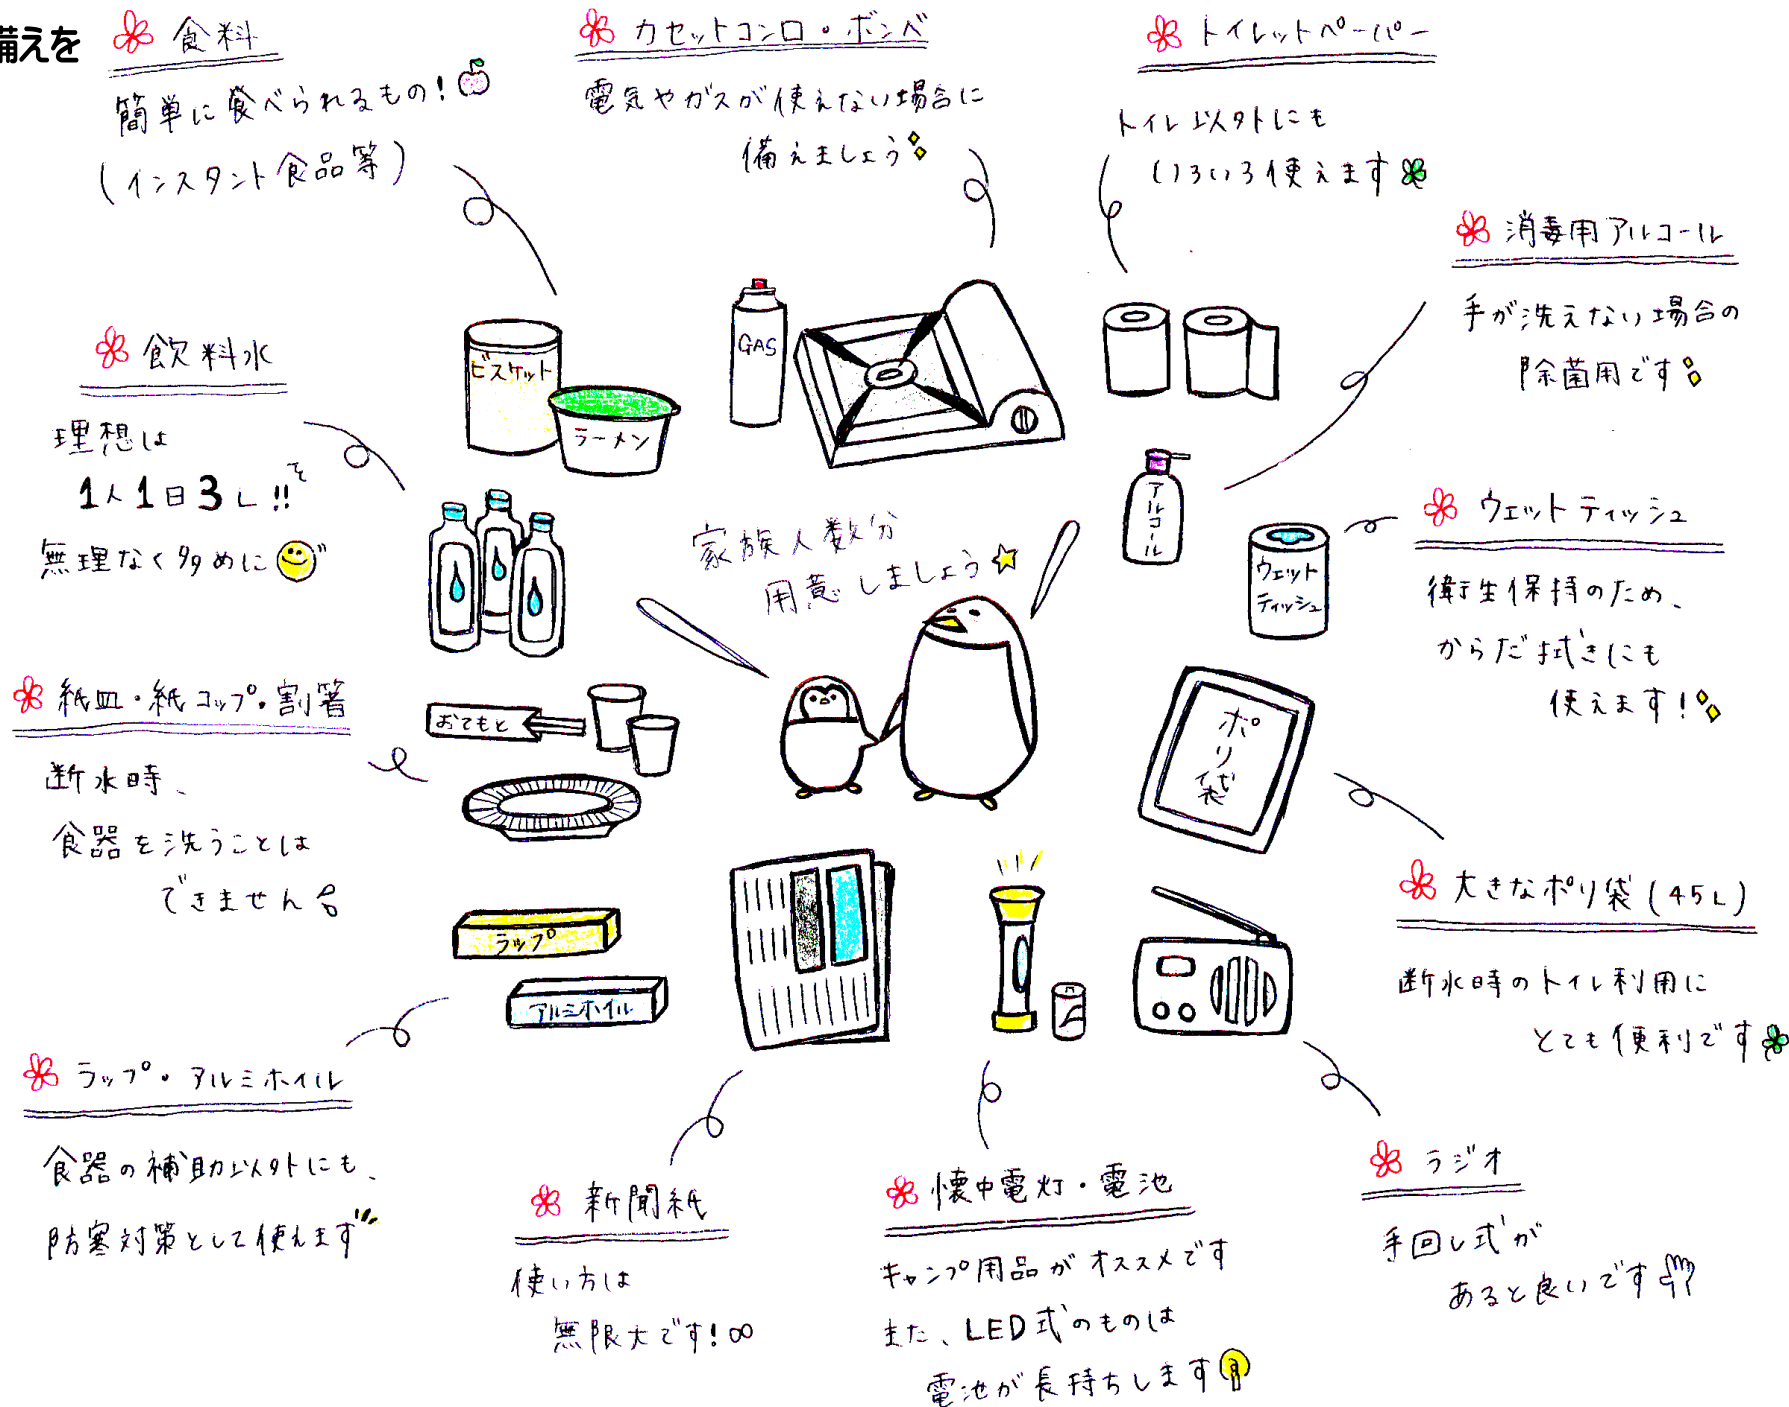 備えを
食料
簡単に食べられるもの!
(インスタント食品等)
カセットコンロ・ボンベ
電気やガスが使えない場合に
備えましょう
トイレットペーパー
トイレ以外にも
いろいろ使えます
消毒用アルコール
手が洗えない場合の
除菌用です
飲料水
理想は
1人1日3L!!を
無理なく多めに
ビスケット
ラーメン
GAS
アルコール
ウェットティッシュ
衛生保持のため、
からだ拭きにも
使えます!
ウェット
ティッシュ
家族人数分
用意しましょう
紙皿・紙コップ・割箸
断水時、
食器を洗うことは
できません
おてもと
ポリ袋
大きなポリ袋(45L)
断水時のトイレ利用に
とても便利です
ラップ
アルミホイル
ラップ・アルミホイル
食器の補助以外にも、
防寒対策として使えます
新聞紙
使い方は
無限大です!∞
懐中電灯・電池
キャンプ用品がオススメです
また、LED式のものは
電池が長持ちします
ラジオ
手回し式が
あると良いです